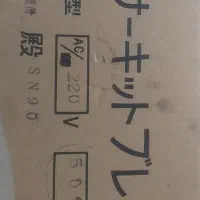 サーキットブレ
型 AC/ 220 V 50
殿 SN90